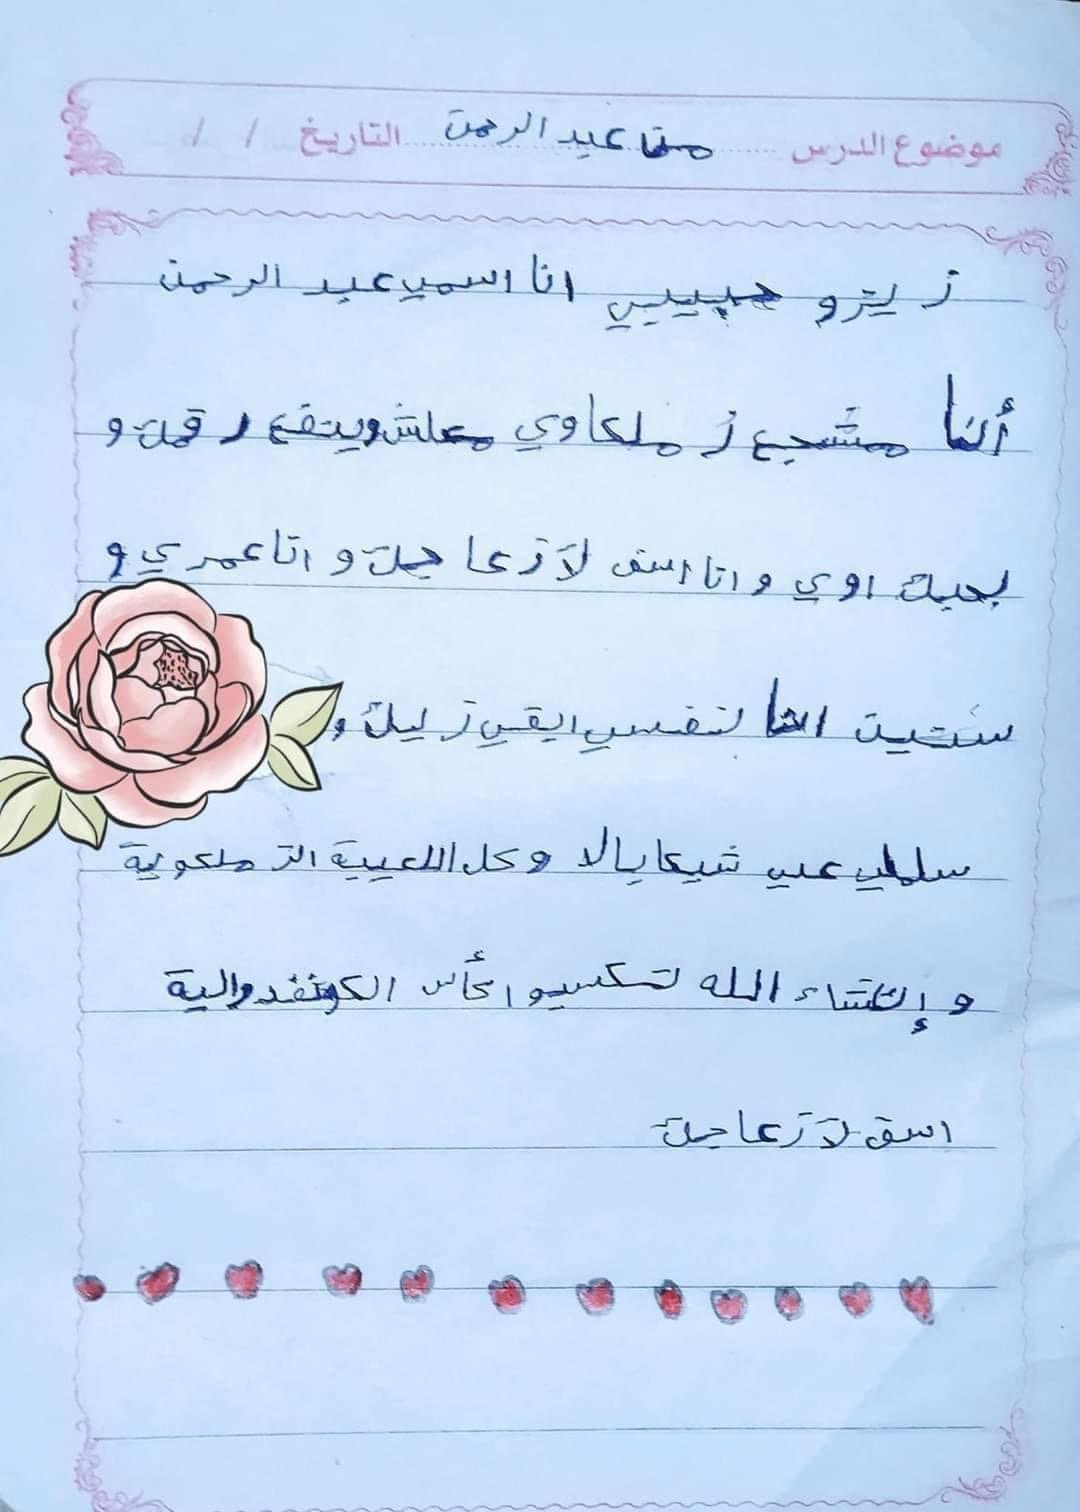 موضوع الدرس عبد الرحمن التاريخ / /
زيزو حبيبي انا اسمي عبد الرحمن
أنا مشجع زملكاوي معلش ويتفع رقمك و
بحبك اوي و انا اسف لازعاجك و انا عمري و
ستين انا لنفسي ايقي زليك و
سلملي علي شيكابالا وكل اللعيبة الزملكوية
و إنشاء الله تكسبوا كأس الكونفدرالية
اسف لازعاجك